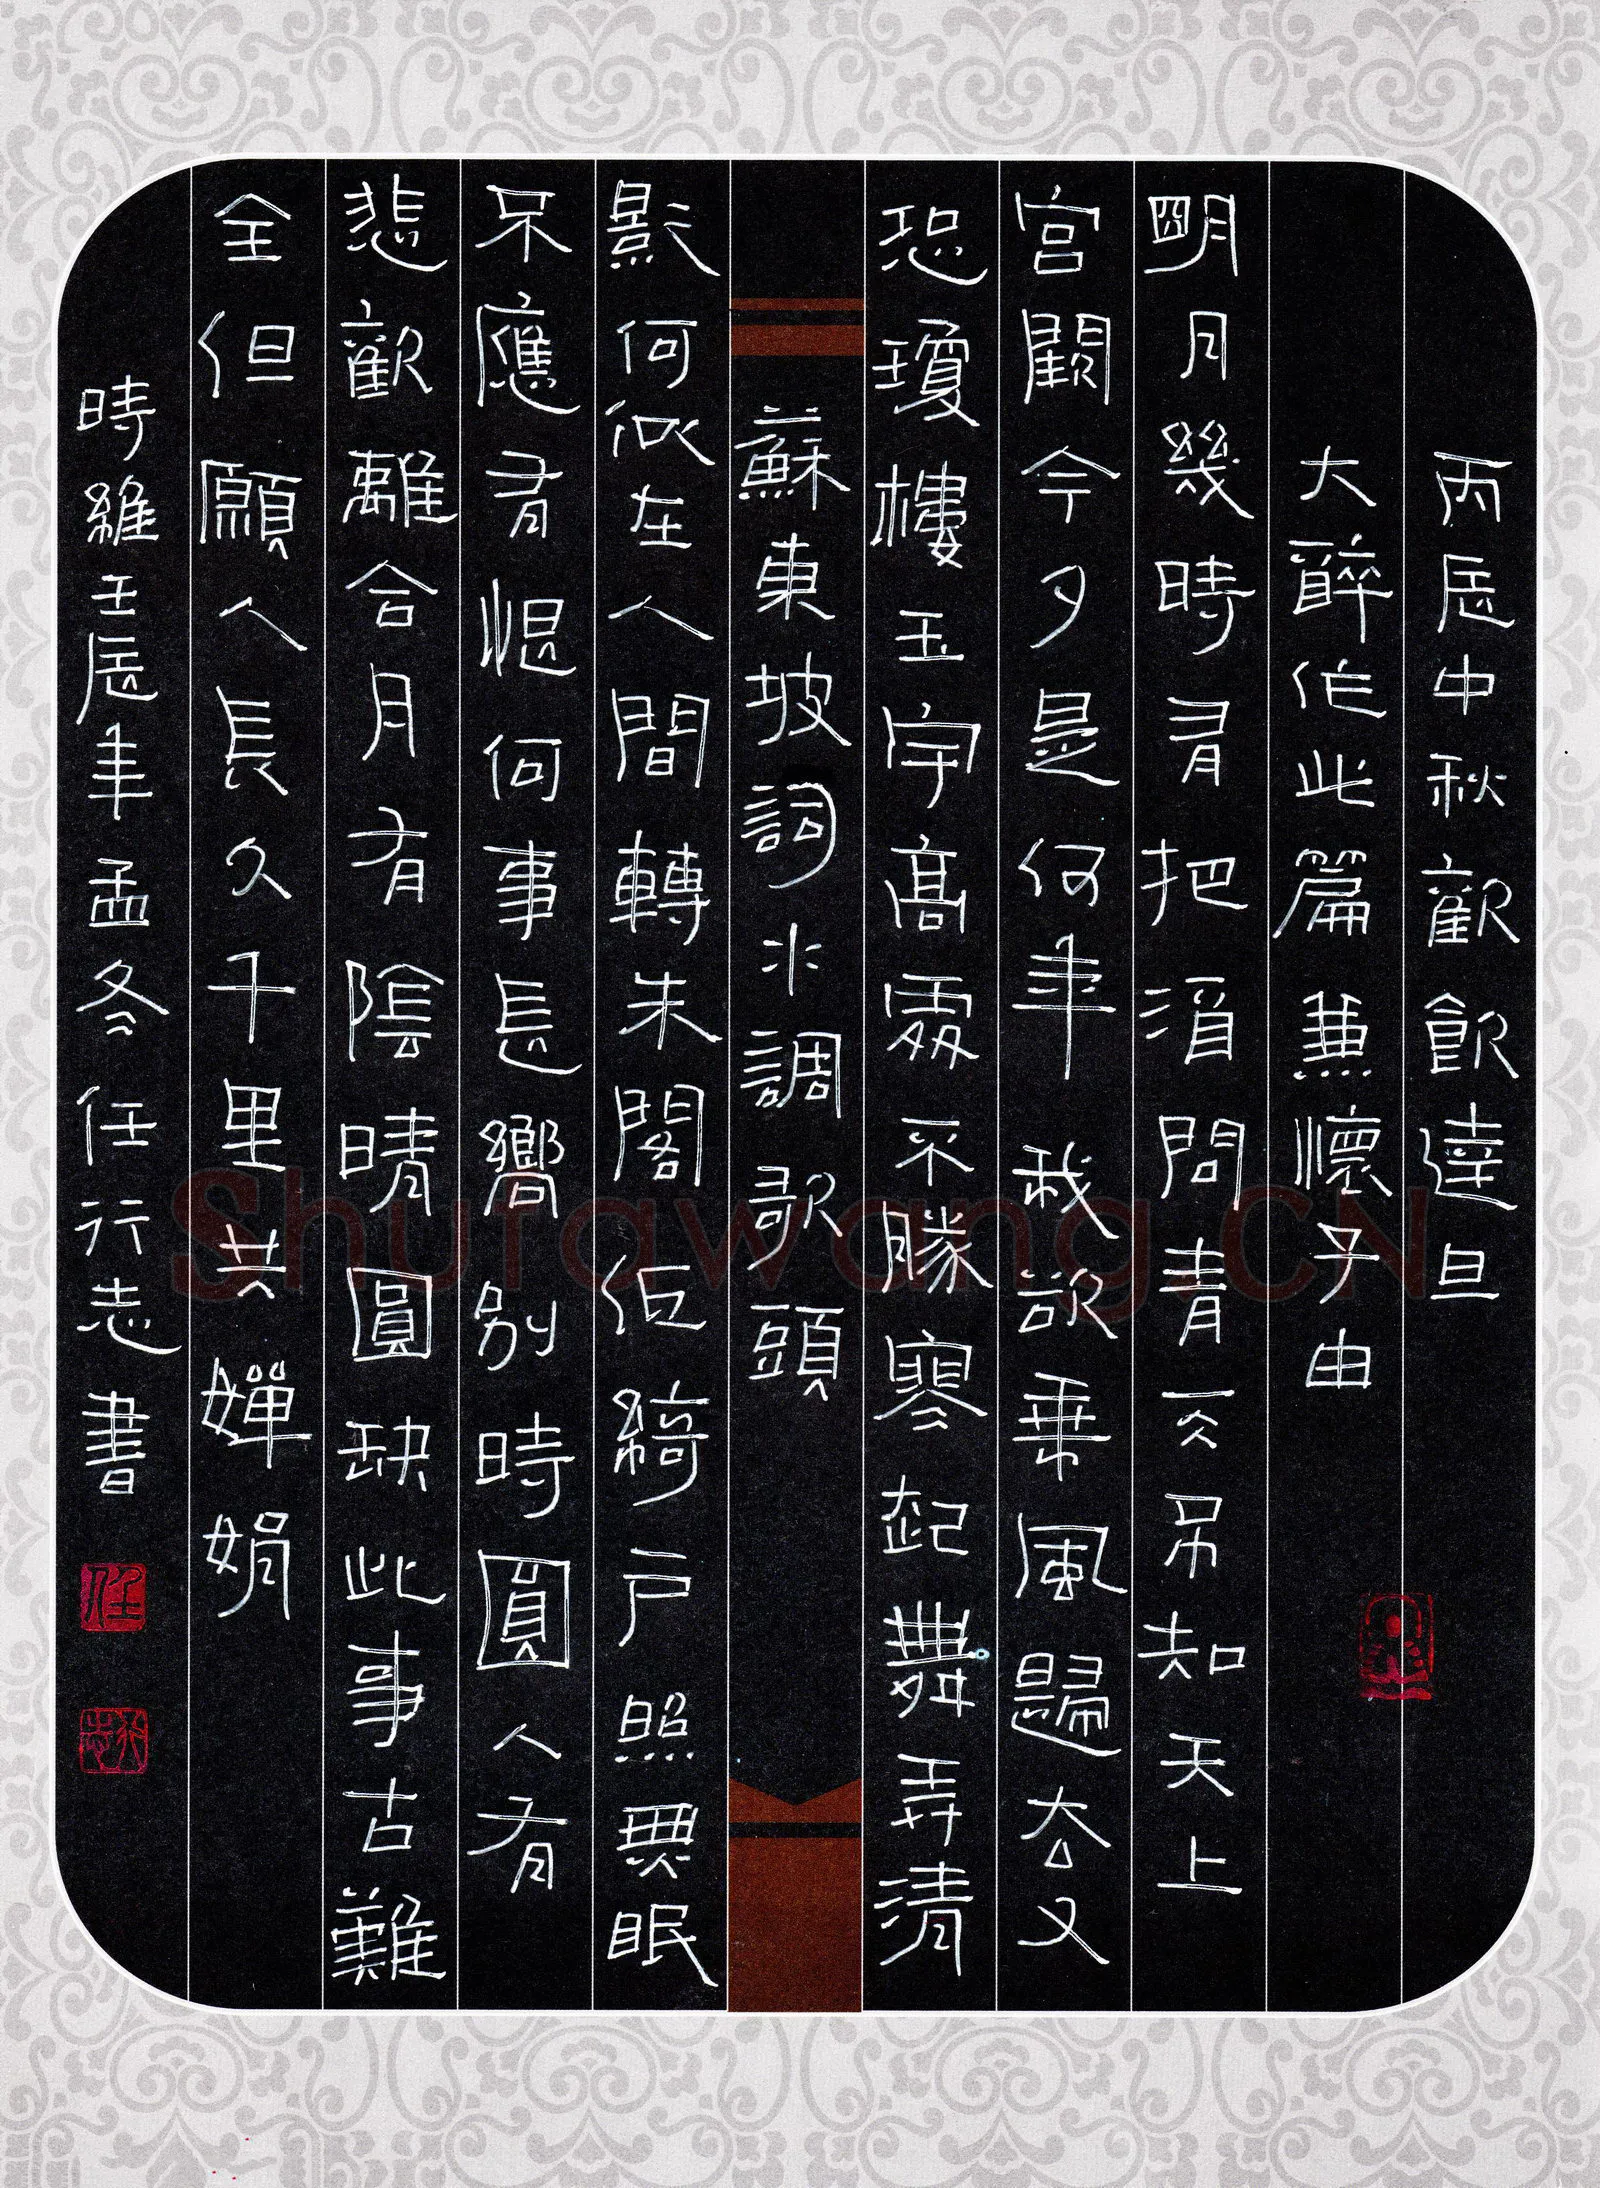 丙辰中秋歡飲達旦
大醉作此篇兼懷子由
明月幾時有把酒問青天不知天上
宮闕今夕是何年我欲乘風歸去又
恐瓊樓玉宇高處不勝寒起舞弄清
蘇東坡詞水調歌頭
影何似在人間轉朱閣低綺戶照無眠
不應有恨何事長嚮別時圓人有
悲歡離合月有陰晴圓缺此事古難
全但願人長久千里共嬋娟
時維壬辰年孟冬任行志書
任
行志
Shufawang.CN